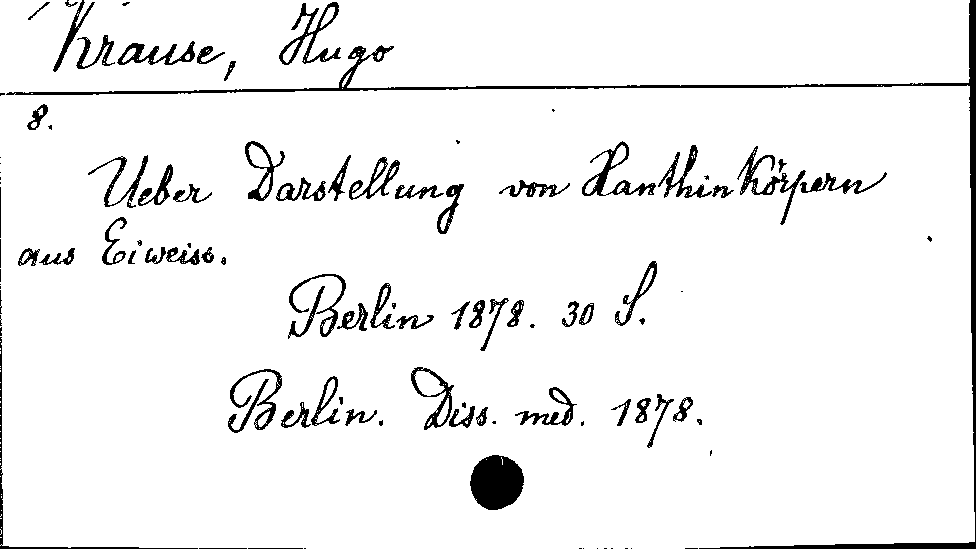 Krause, Hugo
8.
Ueber Darstellung von Xanthinkörpern
aus Eiweiss.
Berlin 1878. 30 S.
Berlin. Diss. med. 1878.